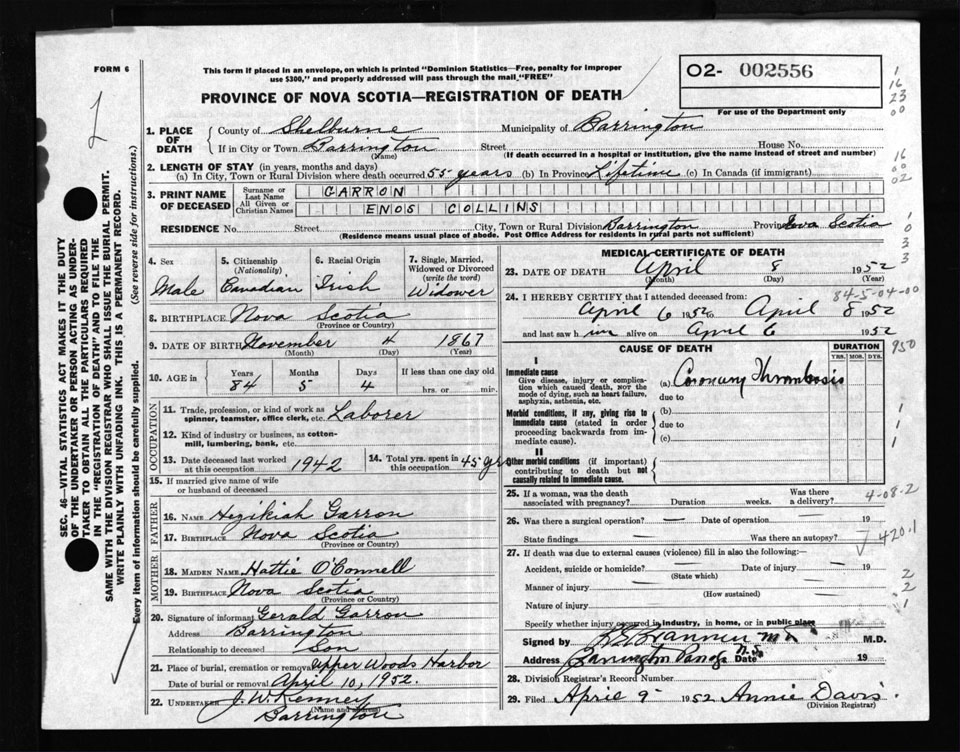 FORM 6
This form if placed in an envelope, on which is printed "Dominion Statistics—Free, penalty for improper
use $300," and properly addressed will pass through the mail "FREE"
O2- 002556
For use of the Department only
PROVINCE OF NOVA SCOTIA—REGISTRATION OF DEATH
1. PLACE OF DEATH
County of Shelburne Municipality of Barrington
If in City or Town Barrington Street House No.
(Name) (If death occurred in a hospital or institution, give the name instead of street and number)
2. LENGTH OF STAY (in years, months and days)
(a) In City, Town or Rural Division where death occurred 55 years (b) In Province Lifetime (c) In Canada (if immigrant)
3. PRINT NAME OF DECEASED
Surname or Last Name GARRON
All Given or Christian Names ENOS COLLINS
RESIDENCE No. Street City, Town or Rural Division Barrington Province Nova Scotia
(Residence means usual place of abode. Post Office Address for residents in rural parts not sufficient)
4. Sex
Male
5. Citizenship (Nationality)
Canadian
6. Racial Origin
Irish
7. Single, Married, Widowed or Divorced (write the word)
Widower
8. BIRTHPLACE Nova Scotia
(Province or Country)
9. DATE OF BIRTH November 4 1867
(Month) (Day) (Year)
10. AGE in Years Months Days If less than one day old
84 5 4 hrs. or min.
OCCUPATION
11. Trade, profession, or kind of work as Laborer
spinner, teamster, office clerk, etc.
12. Kind of industry or business, as cotton-
mill, lumbering, bank, etc.
13. Date deceased last worked at this occupation 1942
14. Total yrs. spent in this occupation 45 yrs
15. If married give name of wife
or husband of deceased
FATHER
16. Name Hezikiah Garron
17. Birthplace Nova Scotia
(Province or Country)
MOTHER
18. Maiden Name Hattie O'Connell
19. Birthplace Nova Scotia
(Province or Country)
20. Signature of informant Gerald Garron
Address Barrington
Relationship to deceased Son
21. Place of burial, cremation or removal Upper Woods Harbor
Date of burial or removal April 10, 1952.
22. UNDERTAKER J. W. Kenney
(Name and address)
Barrington
MEDICAL CERTIFICATE OF DEATH
23. DATE OF DEATH April 8 1952
(Month) (Day) (Year)
84-5-04-00
24. I HEREBY CERTIFY that I attended deceased from:
April 6 1952 to April 8 1952
and last saw him alive on April 6 1952
CAUSE OF DEATH
DURATION
YRS. MOS. DYS.
950
I
Immediate cause
Give disease, injury or complication which caused death, NOT the mode of dying, such as heart failure, asphyxia, asthenia, etc.
(a) Coronary Thrombosis
due to
Morbid conditions, if any, giving rise to immediate cause (stated in order proceeding backwards from immediate cause).
(b)
due to
(c)
II
Other morbid conditions (if important) contributing to death but not causally related to immediate cause.
25. If a woman, was the death associated with pregnancy? Duration weeks. Was there a delivery?
4-08-2
26. Was there a surgical operation? — Date of operation — 19
State findings — Was there an autopsy?
420.1
27. If death was due to external causes (violence) fill in also the following:—
Accident, suicide or homicide? — Date of injury — 19
(State which)
Manner of injury —
(How sustained)
Nature of injury —
Specify whether injury occurred in industry, in home, or in public place
Signed by M.D.
Address Barrington Passage N.S. Date 19
28. Division Registrar's Record Number
29. Filed April 9 1952 Annie Davis.
(Division Registrar)
SEC. 46—VITAL STATISTICS ACT MAKES IT THE DUTY
OF THE UNDERTAKER OR PERSON ACTING AS UNDER-
TAKER TO OBTAIN ALL THE PARTICULARS REQUIRED
IN THE "REGISTRATION OF DEATH" AND TO FILE THE
SAME WITH THE DIVISION REGISTRAR WHO SHALL ISSUE THE BURIAL PERMIT.
WRITE PLAINLY WITH UNFADING INK. THIS IS A PERMANENT RECORD.
Every item of information should be carefully supplied. (See reverse side for instructions.)